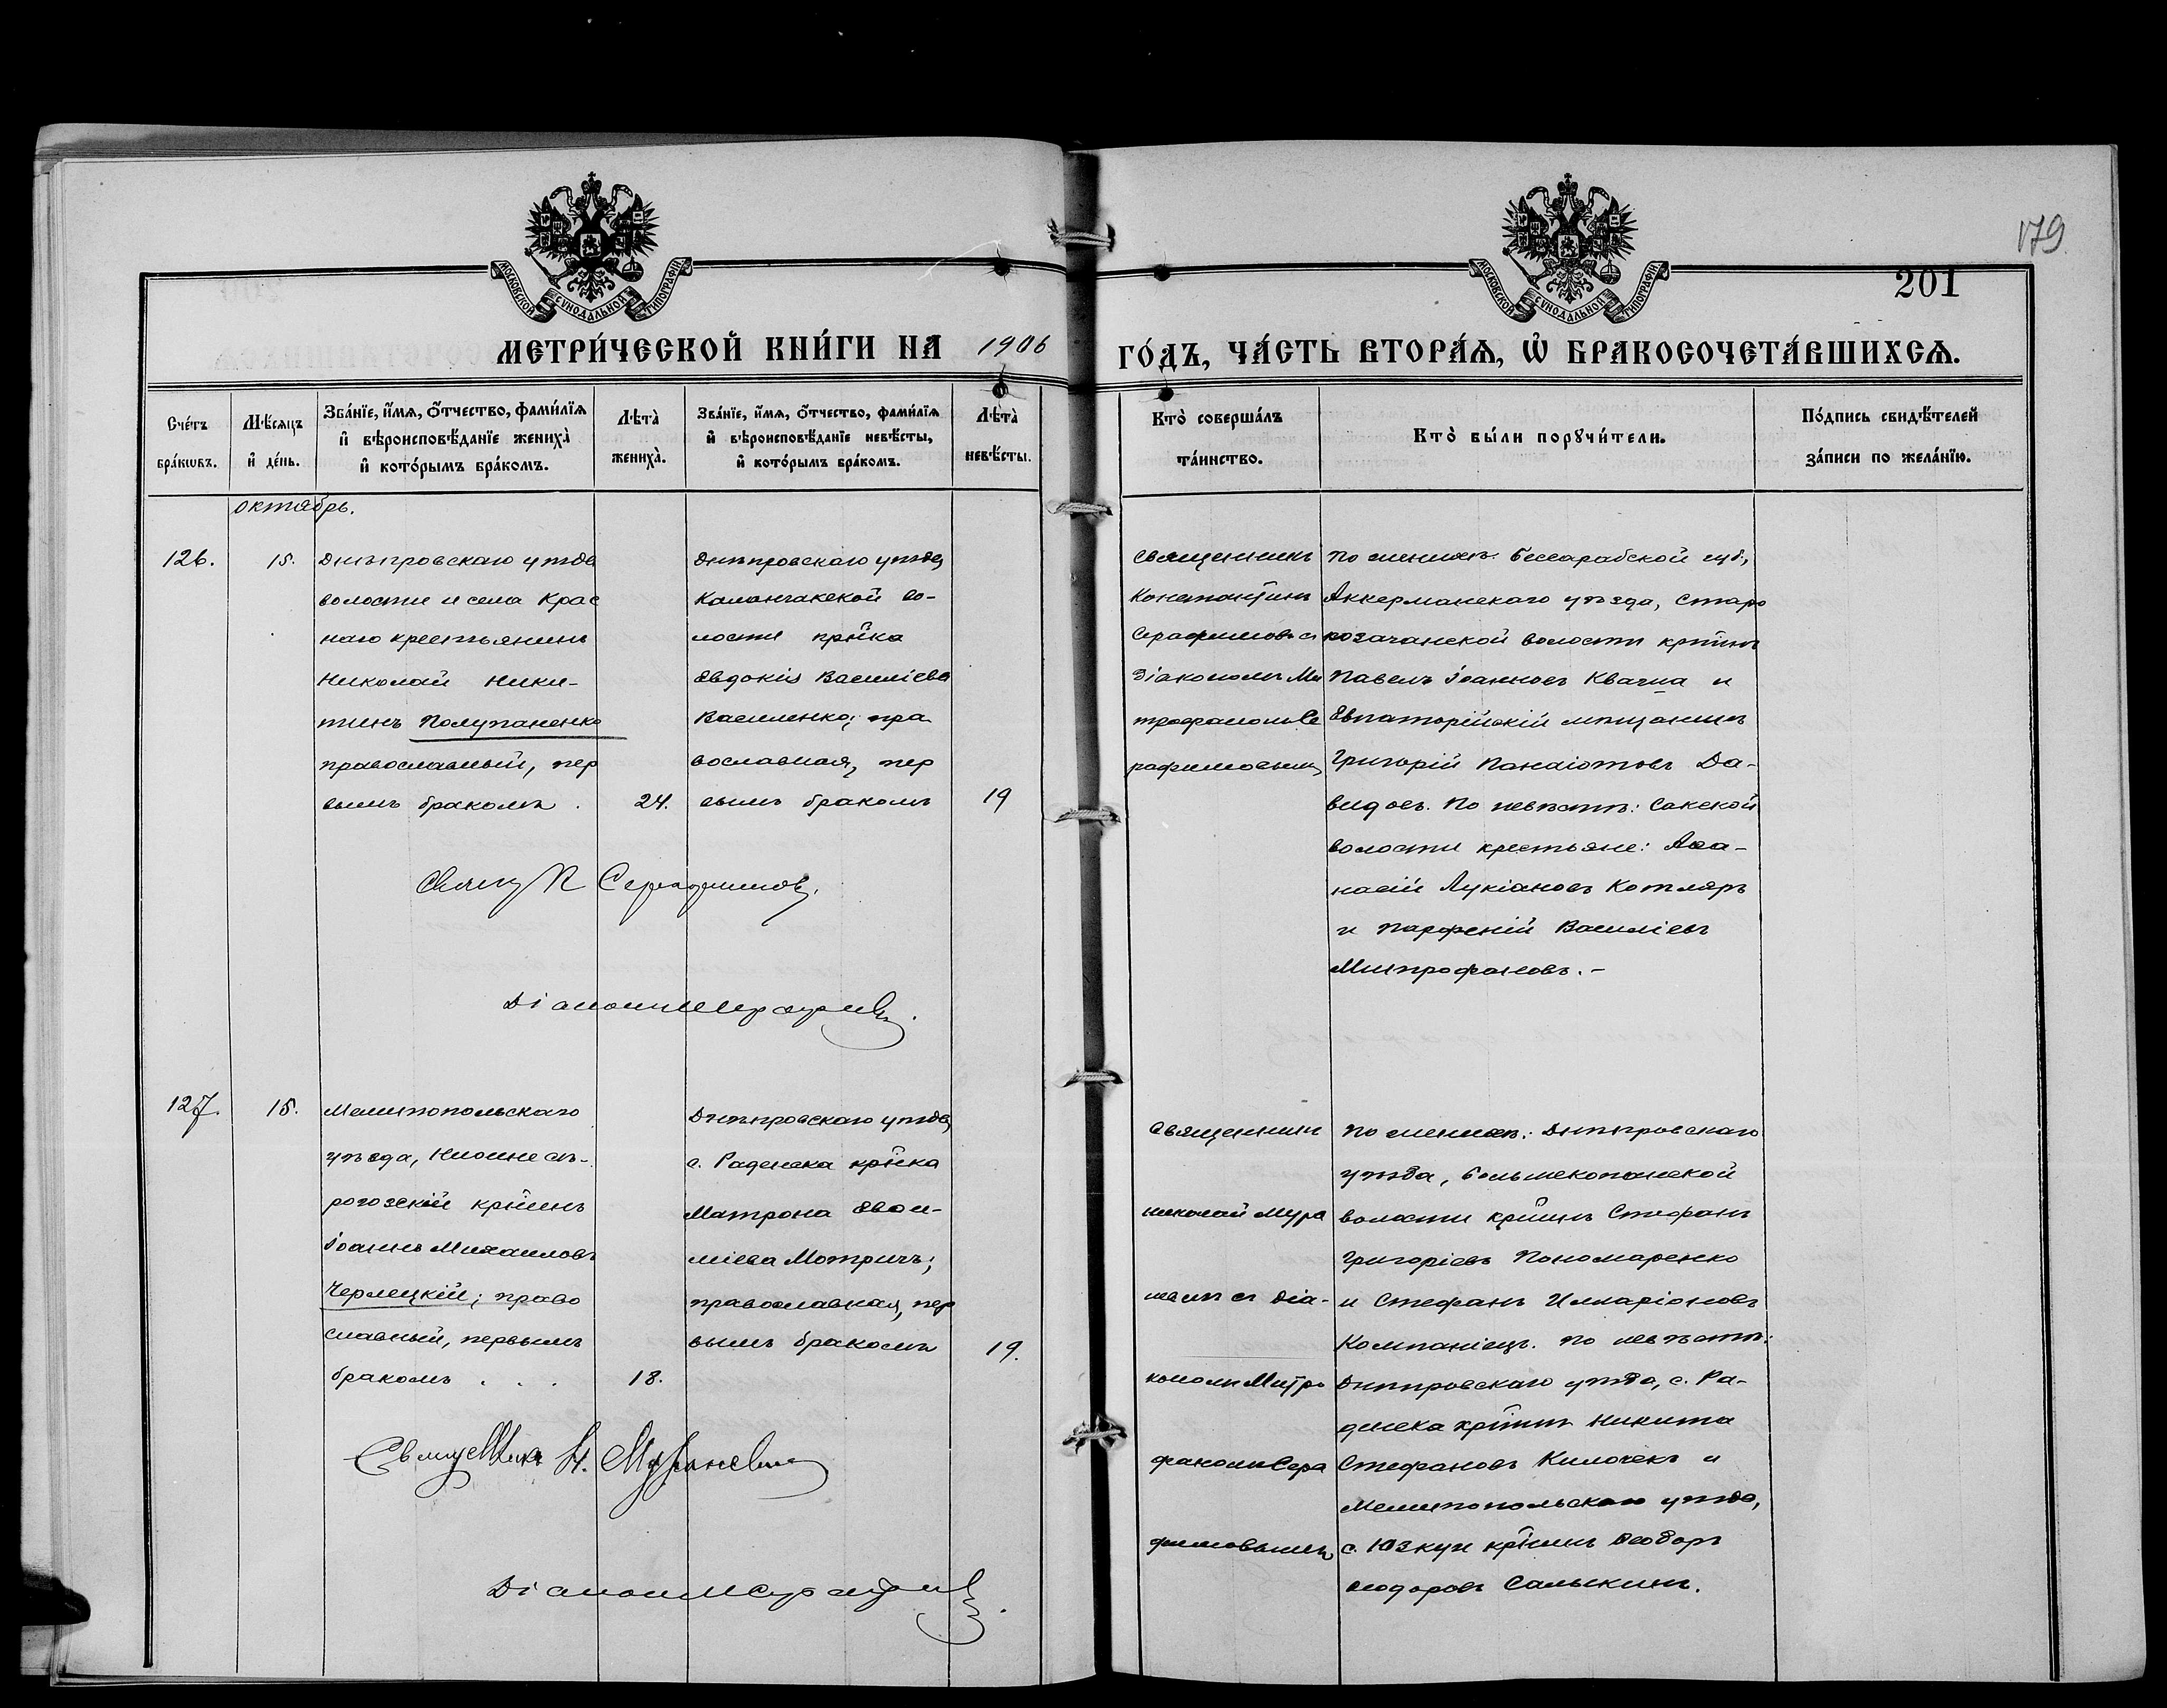 179
201
МОСКОВСКОЙ СѴНОДАЛЬНОЙ ТИПОГРАФІИ
МОСКОВСКОЙ СѴНОДАЛЬНОЙ ТИПОГРАФІИ
МЕТРИ́ЧЕСКОЙ КНИ́ГИ НА 1906
ГО́ДЪ, ЧА́СТЬ ВТОРА́Я, Ѡ҆ БРАКОСОЧЕТА́ВШИХСЯ.
Сче́тъ бра́кѡвъ.
Мѣ́сяцъ и҆ де́нь.
Зва́нїе, и҆́мя, ѻ҆́тчество, фами́лїя
и҆ вѣроисповѣ́данїе жениха̀
и҆ кото́рымъ бра́комъ.
Лѣ́та̀ жениха̀.
Зва́нїе, и҆́мя, ѻ҆́тчество, фами́лїя
и҆ вѣроисповѣ́данїе невѣ́сты,
и҆ кото́рымъ бра́комъ.
Лѣ́та̀ невѣ́сты.
Кто̀ соверша́лъ
та́инство.
Кто̀ бы́ли порꙋчи́тели.
По́дпись свидѣ́телей
за́писи по жела́нїю.
октябрь.
126.
15.
Днѣпровскаго уѣзда
волости и села Крас
наго крестьянинъ
Николай Ники-
тинъ Полупаненко
православный, пер
вымъ бракомъ .
24.
Днѣпровскаго уѣзда
Каланчакской во-
лости кр̃нка
Евдокія Василіева
Василенко; пра
вославная, пер
вымъ бракомъ
19
Священникъ
Константинъ
Серафимовъ съ
Діакономъ Ми
трофаномъ Се
рафимовымъ
По женихѣ: Бессарабской губ.,
Аккерманскаго уѣзда, Старо
козачанской волости кр̃нинъ
Павелъ Іоанновъ Квачиа и
Евпаторійскій мѣщанинъ
Григорій Панаіотовъ Да-
видовъ. По невѣстѣ: Сакской
волости крестьяне: Аѳа-
насій Лукіановъ Котляръ
и Парфеній Василіевъ
Митрофановъ.-
Свящ К Серафимовъ.
Діаконъ М Серафимовъ.
127.
15.
Мелитопольскаго
уѣзда, Нижнесѣ-
рогозскій кр̃нинъ
Іоаннъ Михаиловъ
Черлецкій; право
славный, первымъ
бракомъ . . .
18.
Днѣпровскаго уѣзда
с. Раденска кр̃нка
Матрона Евѳи-
міева Мотричъ;
православная, пер
вымъ бракомъ
19.
Священникъ
Николай Мура
невичъ съ Діа-
кономъ Митро
фаномъ Сера
фимовымъ
По женихѣ: Днѣпровскаго
уѣзда, Большекопанской
волости кр̃нинъ Стефанъ
Григоріевъ Пономаренко
и Стефанъ Илларіоновъ
Компаніецъ. По невѣстѣ:
Днѣпровскаго уѣзда, с. Ра-
денска кр̃нинъ Никита
Стефановъ Килочекъ и
Мелитопольскаго уѣзда,
с. Юзкуи кр̃нинъ Ѳеодоръ
Ѳеодоровъ Салыкинъ.
Священникъ Н. Мураневичъ
Діаконъ М Серафимовъ.